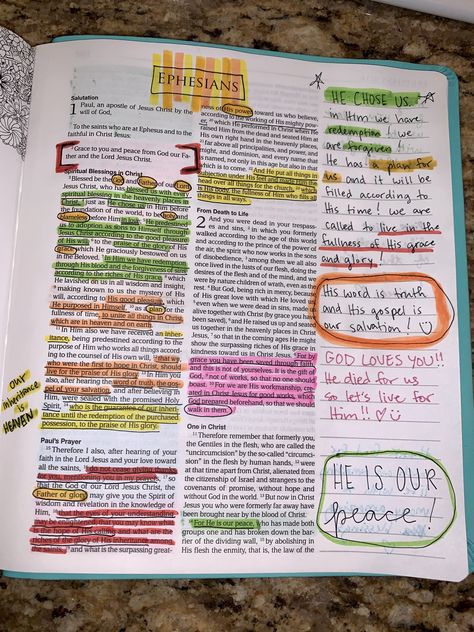 EPHESIANS
Salutation
1 Paul, an apostle of Jesus Christ by the
will of God,
To the saints who are at Ephesus and to the
faithful in Christ Jesus:
2 Grace to you and peace from God our Fa-
ther and the Lord Jesus Christ.
Spiritual Blessings in Christ
3 Blessed be the God and Father of our Lord
Jesus Christ, who has blessed us with every
spiritual blessing in the heavenly places in
Christ, 4 just as He chose us in Him before
the foundation of the world, to be holy and
blameless before Him in love. 5 He predestined
us to adoption as sons to Himself through
Jesus Christ according to the good pleasure
of His will, 6 to the praise of the glory of His
grace which He graciously bestowed on us
in the Beloved.
7 In Him we have redemption
through His blood and the forgiveness of sins
according to the riches of His grace, 8 which
He lavished on us in all wisdom and insight,
9 making known to us the mystery of His
will, according to His good pleasure, which
He purposed in Himself, 10 as a plan for the
fullness of time, to unite all things in Christ,
which are in heaven and on earth.
11 In Him also we have received an inher-
itance, being predestined according to the
purpose of Him who works all things accord-
ing to the counsel of His own will, 12 that we,
who were the first to hope in Christ, should
live for the praise of His glory. 13 In Him you
also, after hearing the word of truth, the gos-
pel of your salvation, and after believing in
Him, were sealed with the promised Holy
Spirit, 14 who is the guarantee of our inher-
itance until the redemption of the purchased
possession, to the praise of His glory.
Paul's Prayer
15 Therefore I also, after hearing of your
faith in the Lord Jesus and your love toward
all the saints, 16 do not cease giving thanks for
you, mentioning you in my prayers, 17 so that
the God of our Lord Jesus Christ, the
Father of glory, may give you the Spirit of
wisdom and revelation in the knowledge of
Him, 18 that the eyes of your understanding
may be enlightened, that you may know what
is the hope of His calling and what are the
riches of the glory of His inheritance among
the saints, 19 and what is the surpassing great-
ness of His power toward us who believe,
according to the working of His mighty pow-
er, 20 which He performed in Christ when He
raised Him from the dead and seated Him at
His own right hand in the heavenly places,
21 far above all principalities, and power, and
might, and dominion, and every name that
is named, not only in this age but also in that
which is to come. 22 And He put all things in
subjection under His feet and made Him the
head over all things for the church, 23 which
is His body, the fullness of Him who fills all
things in all ways.
From Death to Life
2 And you were dead in your trespass-
es and sins, 2 in which you formerly
walked according to the age of this world
and according to the prince of the power of
the air, the spirit who now works in the sons
of disobedience, 3 among them we all also
once lived in the lusts of our flesh, doing the
desires of the flesh and of the mind, and we
were by nature children of wrath, even as the
rest. 4 But God, being rich in mercy, because
of His great love with which He loved us,
5 even when we were dead in sins, made us
alive together with Christ (by grace you have
been saved), 6 and He raised us up and seated
us together in the heavenly places in Christ
Jesus, 7 so that in the coming ages He might
show the surpassing riches of His grace in
kindness toward us in Christ Jesus. 8 For by
grace you have been saved through faith,
and this is not of yourselves. It is the gift of
God, 9 not of works, so that no one should
boast. 10 For we are His workmanship, cre-
ated in Christ Jesus for good works, which
God prepared beforehand, so that we should
walk in them.
One in Christ
11 Therefore remember that formerly you,
the Gentiles in the flesh, who are called the
"uncircumcision" by the so-called "circum-
cision" in the flesh by human hands, 12 were
at that time apart from Christ, alienated from
the citizenship of Israel and strangers to the
covenants of promise, without hope and
without God in the world. 13 But now in Christ
Jesus you who were formerly far away have
been brought near by the blood of Christ.
14 For He is our peace, who has made both
groups one and has broken down the bar-
rier of the dividing wall, 15 by abolishing in
His flesh the enmity, that is, the law of the
our
inheritance
is
HEAVEN
HE CHOSE US.
in Him we have
redemption! we
are forgiven!
He has a plan for
us and it will be
filled according to
His time! we are
called to live in the
fullness of His grace
and glory!
His word is truth
and His gospel is
our salvation!
GOD LOVES YOU!!
He died for us
so let's live for
Him!!
HE IS OUR
peace!